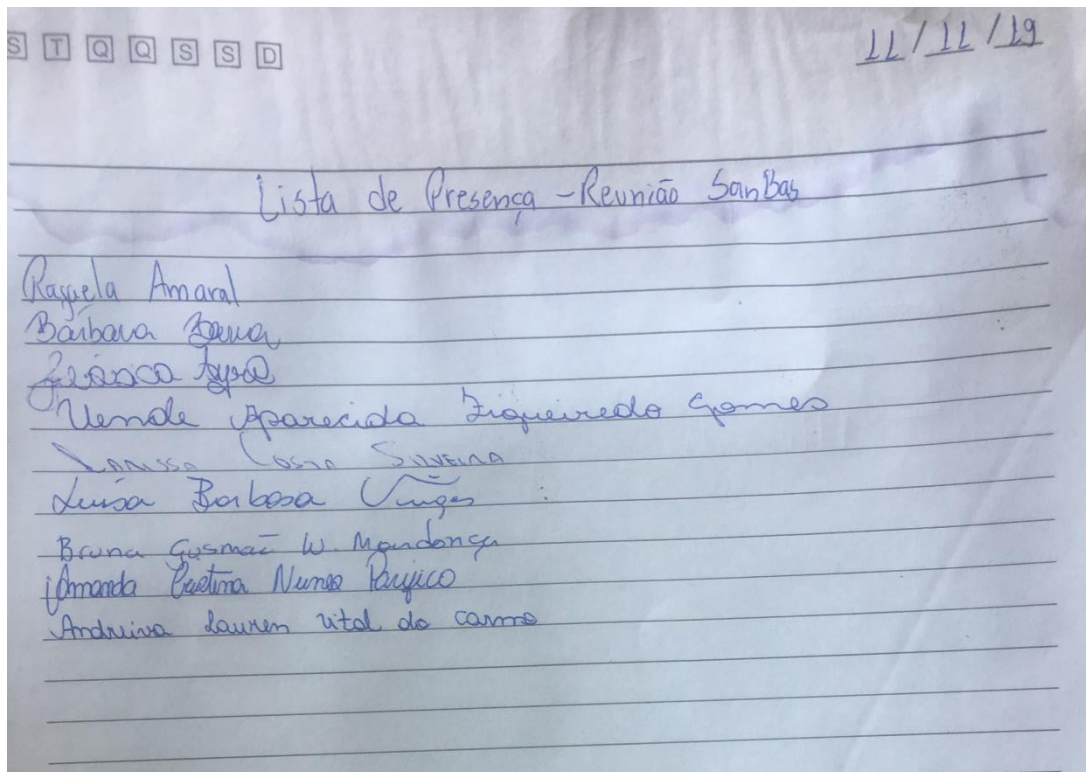 S T Q Q S S D
11/11/19
Lista de Presença - Reunião SanBas
Rafaela Amaral
Bárbara
Jéssica Ayra
Uende Aparecida Figueiredo Gomes
Larissa Costa Silveira
Luisa Barbosa
Bruna Gusmão W. Mendonça
Amanda Cristina Nunes
Andreiva Lauren vital do carmo